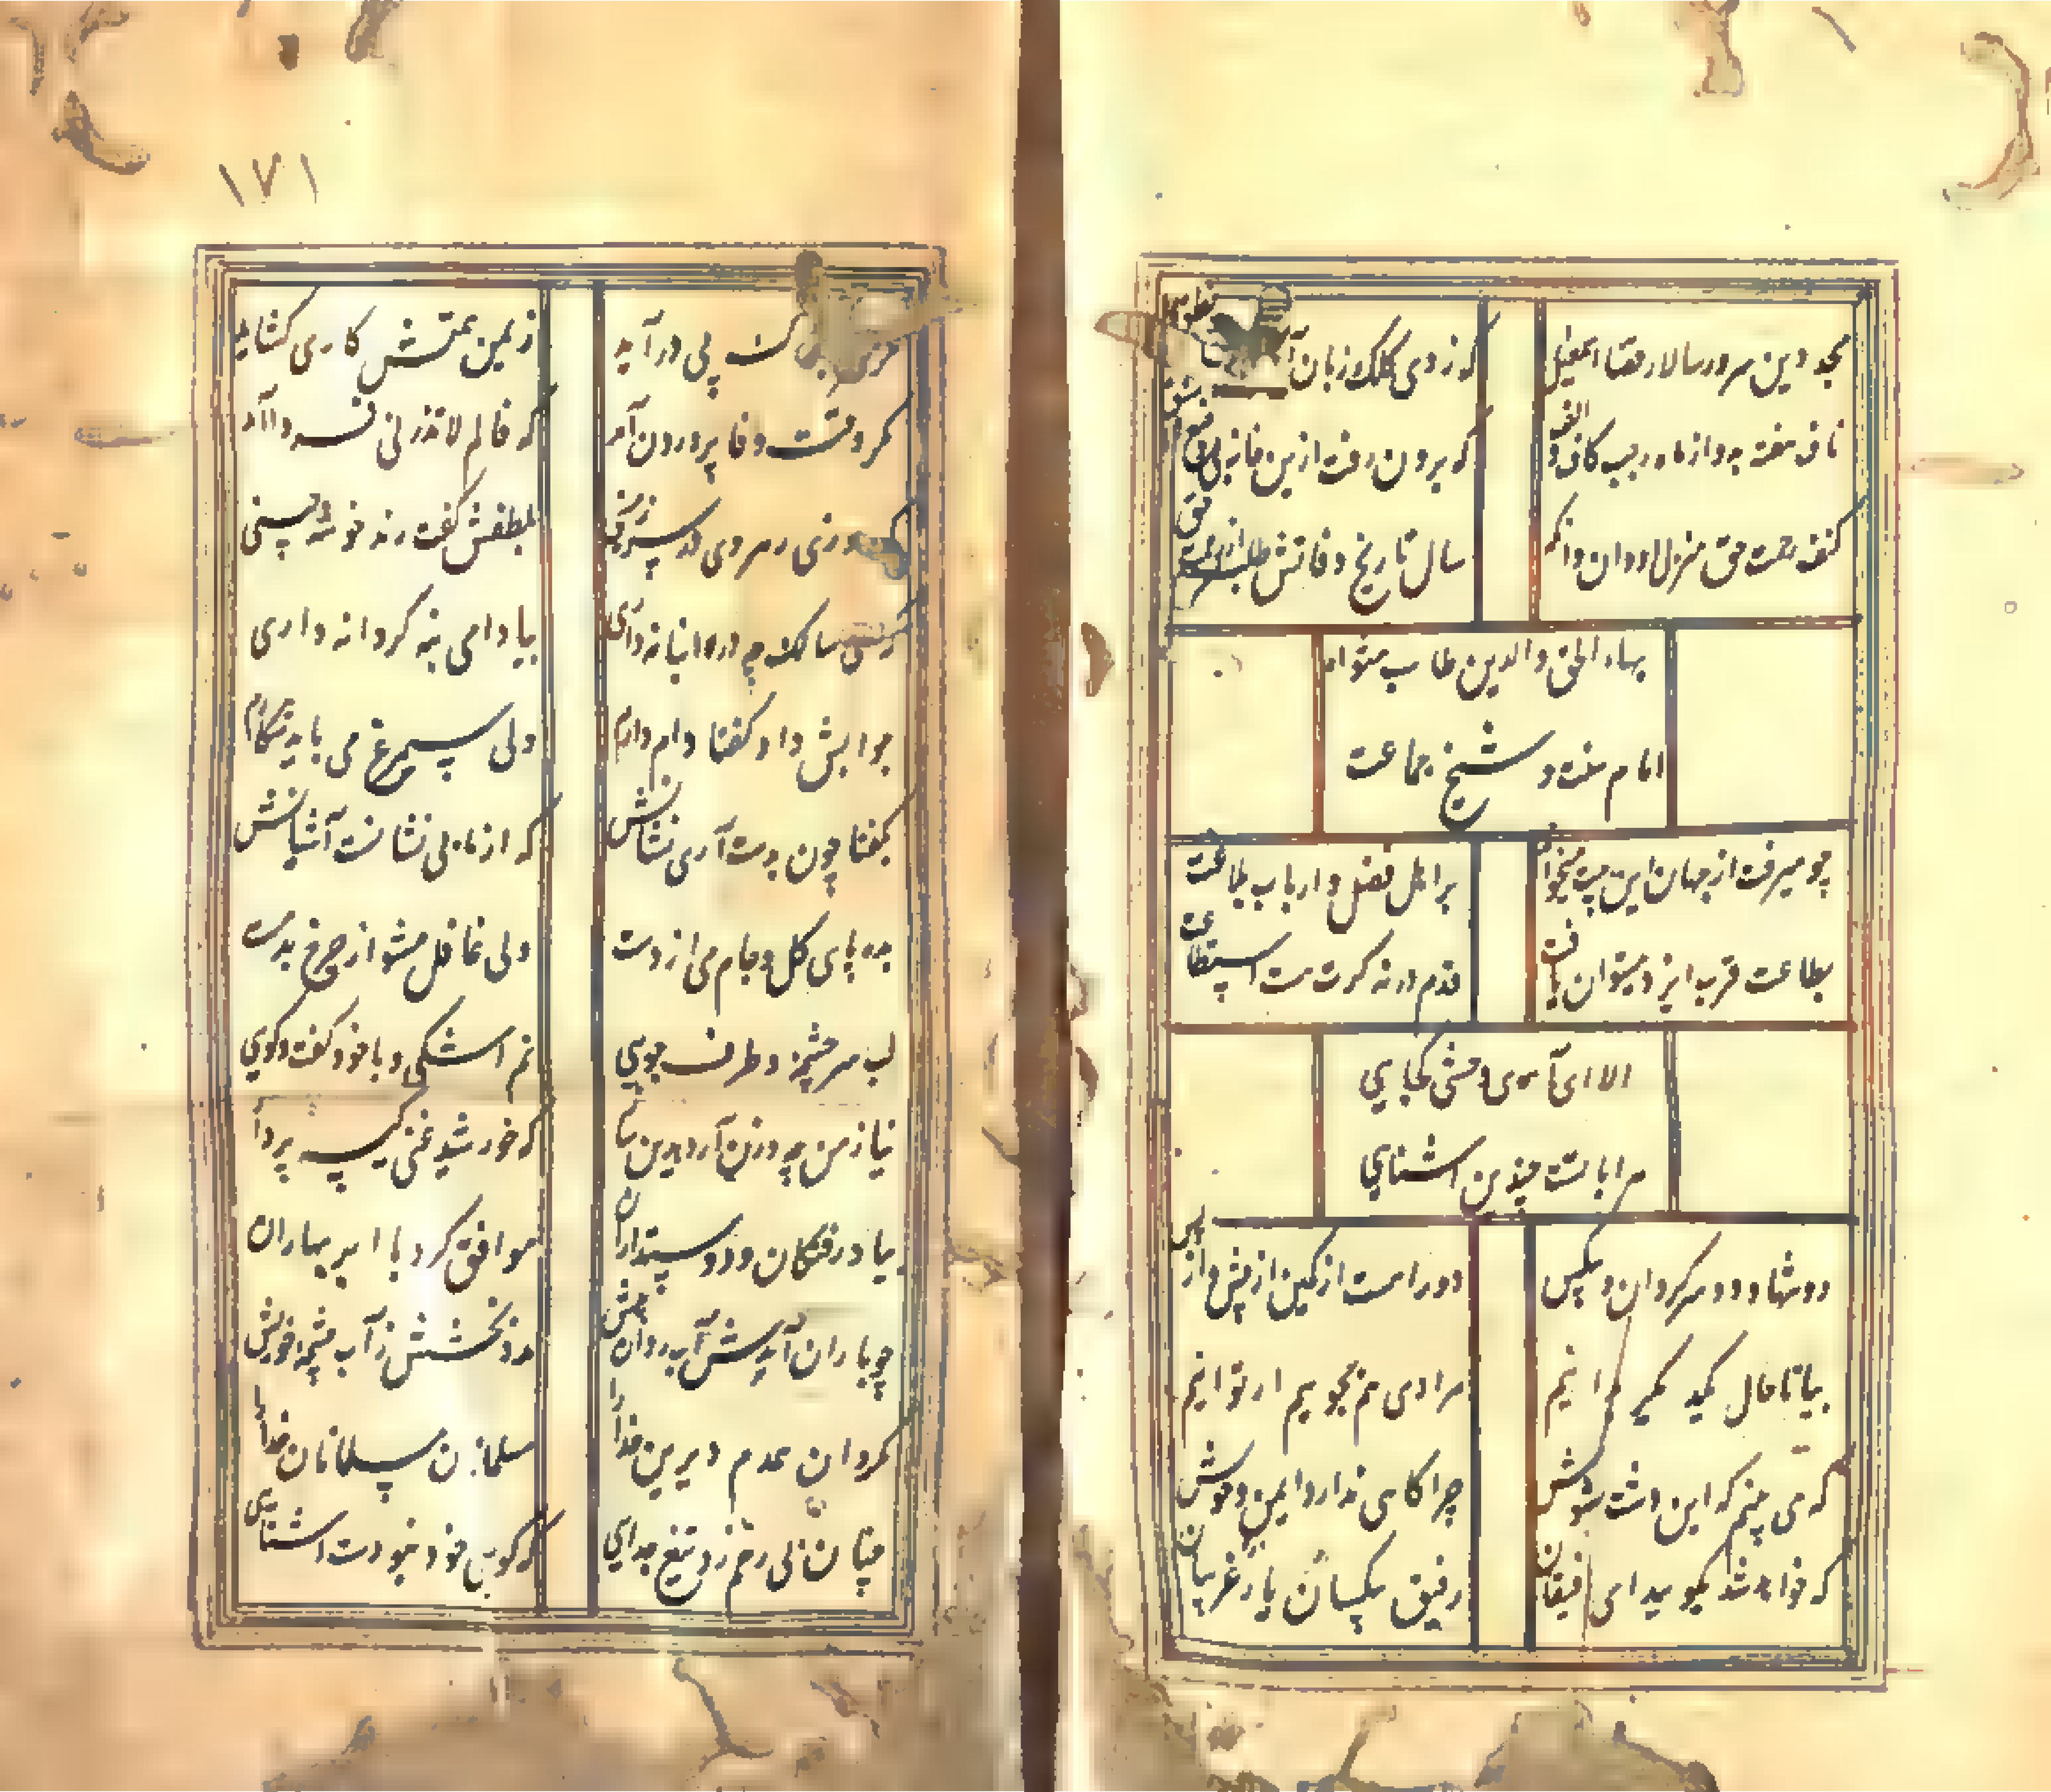 مجد دین سرور سالار قضا اسمعیل
که زدی کلک زبان
ناف هفته بد و از ماه رجب کاف و الف
که برون رفت ازین خانه بی
کنف رحمت حق منزل او دان وانگه
سال تاریخ وفاتش طلب از رحمت حق
بهاء الحق والدین طاب مثواه
امام سنت و شیخ جماعت
چو میرفت از جهان این بیت میخواند
بر اهل فضل و ارباب طاعت
بطاعت قرب ایزد میتوان یافت
قدم در نه گرت هست استطاعت
الا ای آهوی وحشی کجایی
مرا با تست چندین آشنایی
دو تنها و دو سرگردان و بیکس
دو راهست از کمین از پیش و از پس
بیا تا حال یکدیگر بدانیم
مرادی هم بجوییم ار توانیم
که می بینم که این دشت مشوش
چراگاهی ندارد ایمن و خوش
که خواهد شد بگویید ای رفیقان
رفیق بیکسان یار غریبان
۱۷۱
پی درآید
ز یمن همتش کاری گشاید
مگر وقت وفا پروردن آمد
که فالم لا تذرنی فردا آمد
روزی رهروی در سرزمینی
بلطفش گفت رند خوشه چینی
که ای سالک چه در انبانه داری
بیا دامی بنه گر دانه داری
جوابش داد گفتا دام دارم
ولی سیمرغ می باید شکارم
بگفتا چون بدست آری نشانش
که از ما بی نشانست آشیانش
مده پای گل و جام می از دست
ولی غافل مشو از چرخ بدمست
لب سرچشمه و طرف جویی
نم اشکی و با خود گفت و گویی
نیاز من چه وزن آرد بدین ساز
که خورشید غنی کیسه پرداز
بیاد رفتگان و دوستداران
موافق گرد با ابر بهاران
چو باران آیدش آب روان پیش
مدد بخشش ز آب چشمه خویش
نکرد آن همدم دیرین مدارا
مسلمانان مسلمانان خدا را
چنان بی رحم زد تیغ جدایی
که گویی خود نبودست آشنایی